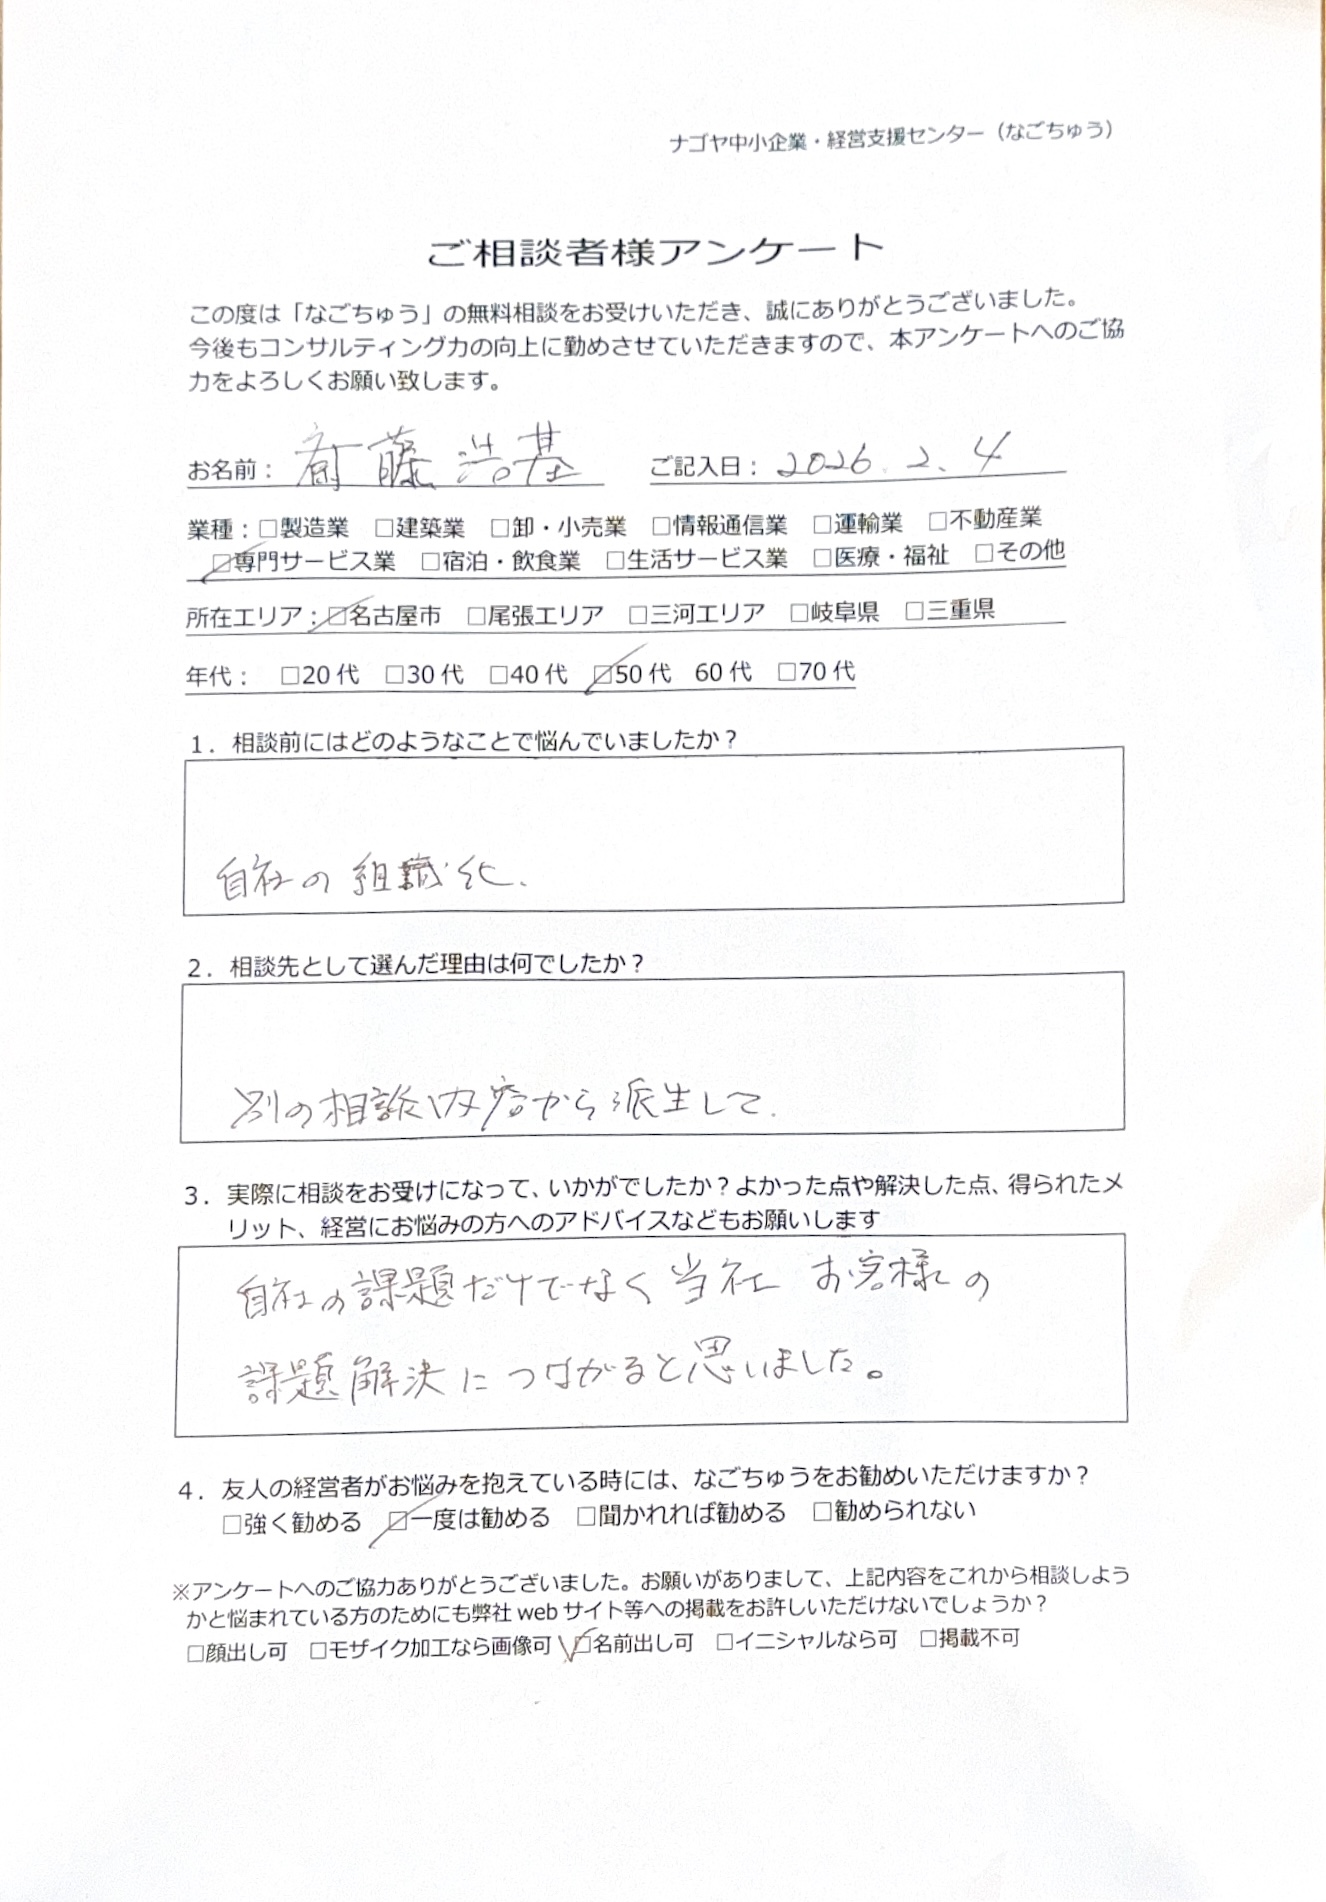 ナゴヤ中小企業・経営支援センター（なごちゅう）
ご相談者様アンケート
この度は「なごちゅう」の無料相談をお受けいただき、誠にありがとうございました。
今後もコンサルティング力の向上に勤めさせていただきますので、本アンケートへのご協
力をよろしくお願い致します。
お名前： 斎藤 浩基 ご記入日： 2026. 2. 4
業種：□製造業 □建築業 □卸・小売業 □情報通信業 □運輸業 □不動産業
☑専門サービス業 □宿泊・飲食業 □生活サービス業 □医療・福祉 □その他
所在エリア：☑名古屋市 □尾張エリア □三河エリア □岐阜県 □三重県
年代： □20代 □30代 □40代 ☑50代 60代 □70代
１．相談前にはどのようなことで悩んでいましたか？
自社の組織化.
２．相談先として選んだ理由は何でしたか？
別の相談内容から派生して.
３．実際に相談をお受けになって、いかがでしたか？よかった点や解決した点、得られたメ
リット、経営にお悩みの方へのアドバイスなどもお願いします
自社の課題だけでなく当社 お客様の
課題解決につながると思いました。
４．友人の経営者がお悩みを抱えている時には、なごちゅうをお勧めいただけますか？
□強く勧める ☑一度は勧める □聞かれれば勧める □勧められない
※アンケートへのご協力ありがとうございました。お願いがありまして、上記内容をこれから相談しよう
かと悩まれている方のためにも弊社 web サイト等への掲載をお許しいただけないでしょうか？
□顔出し可 □モザイク加工なら画像可 ☑名前出し可 □イニシャルなら可 □掲載不可